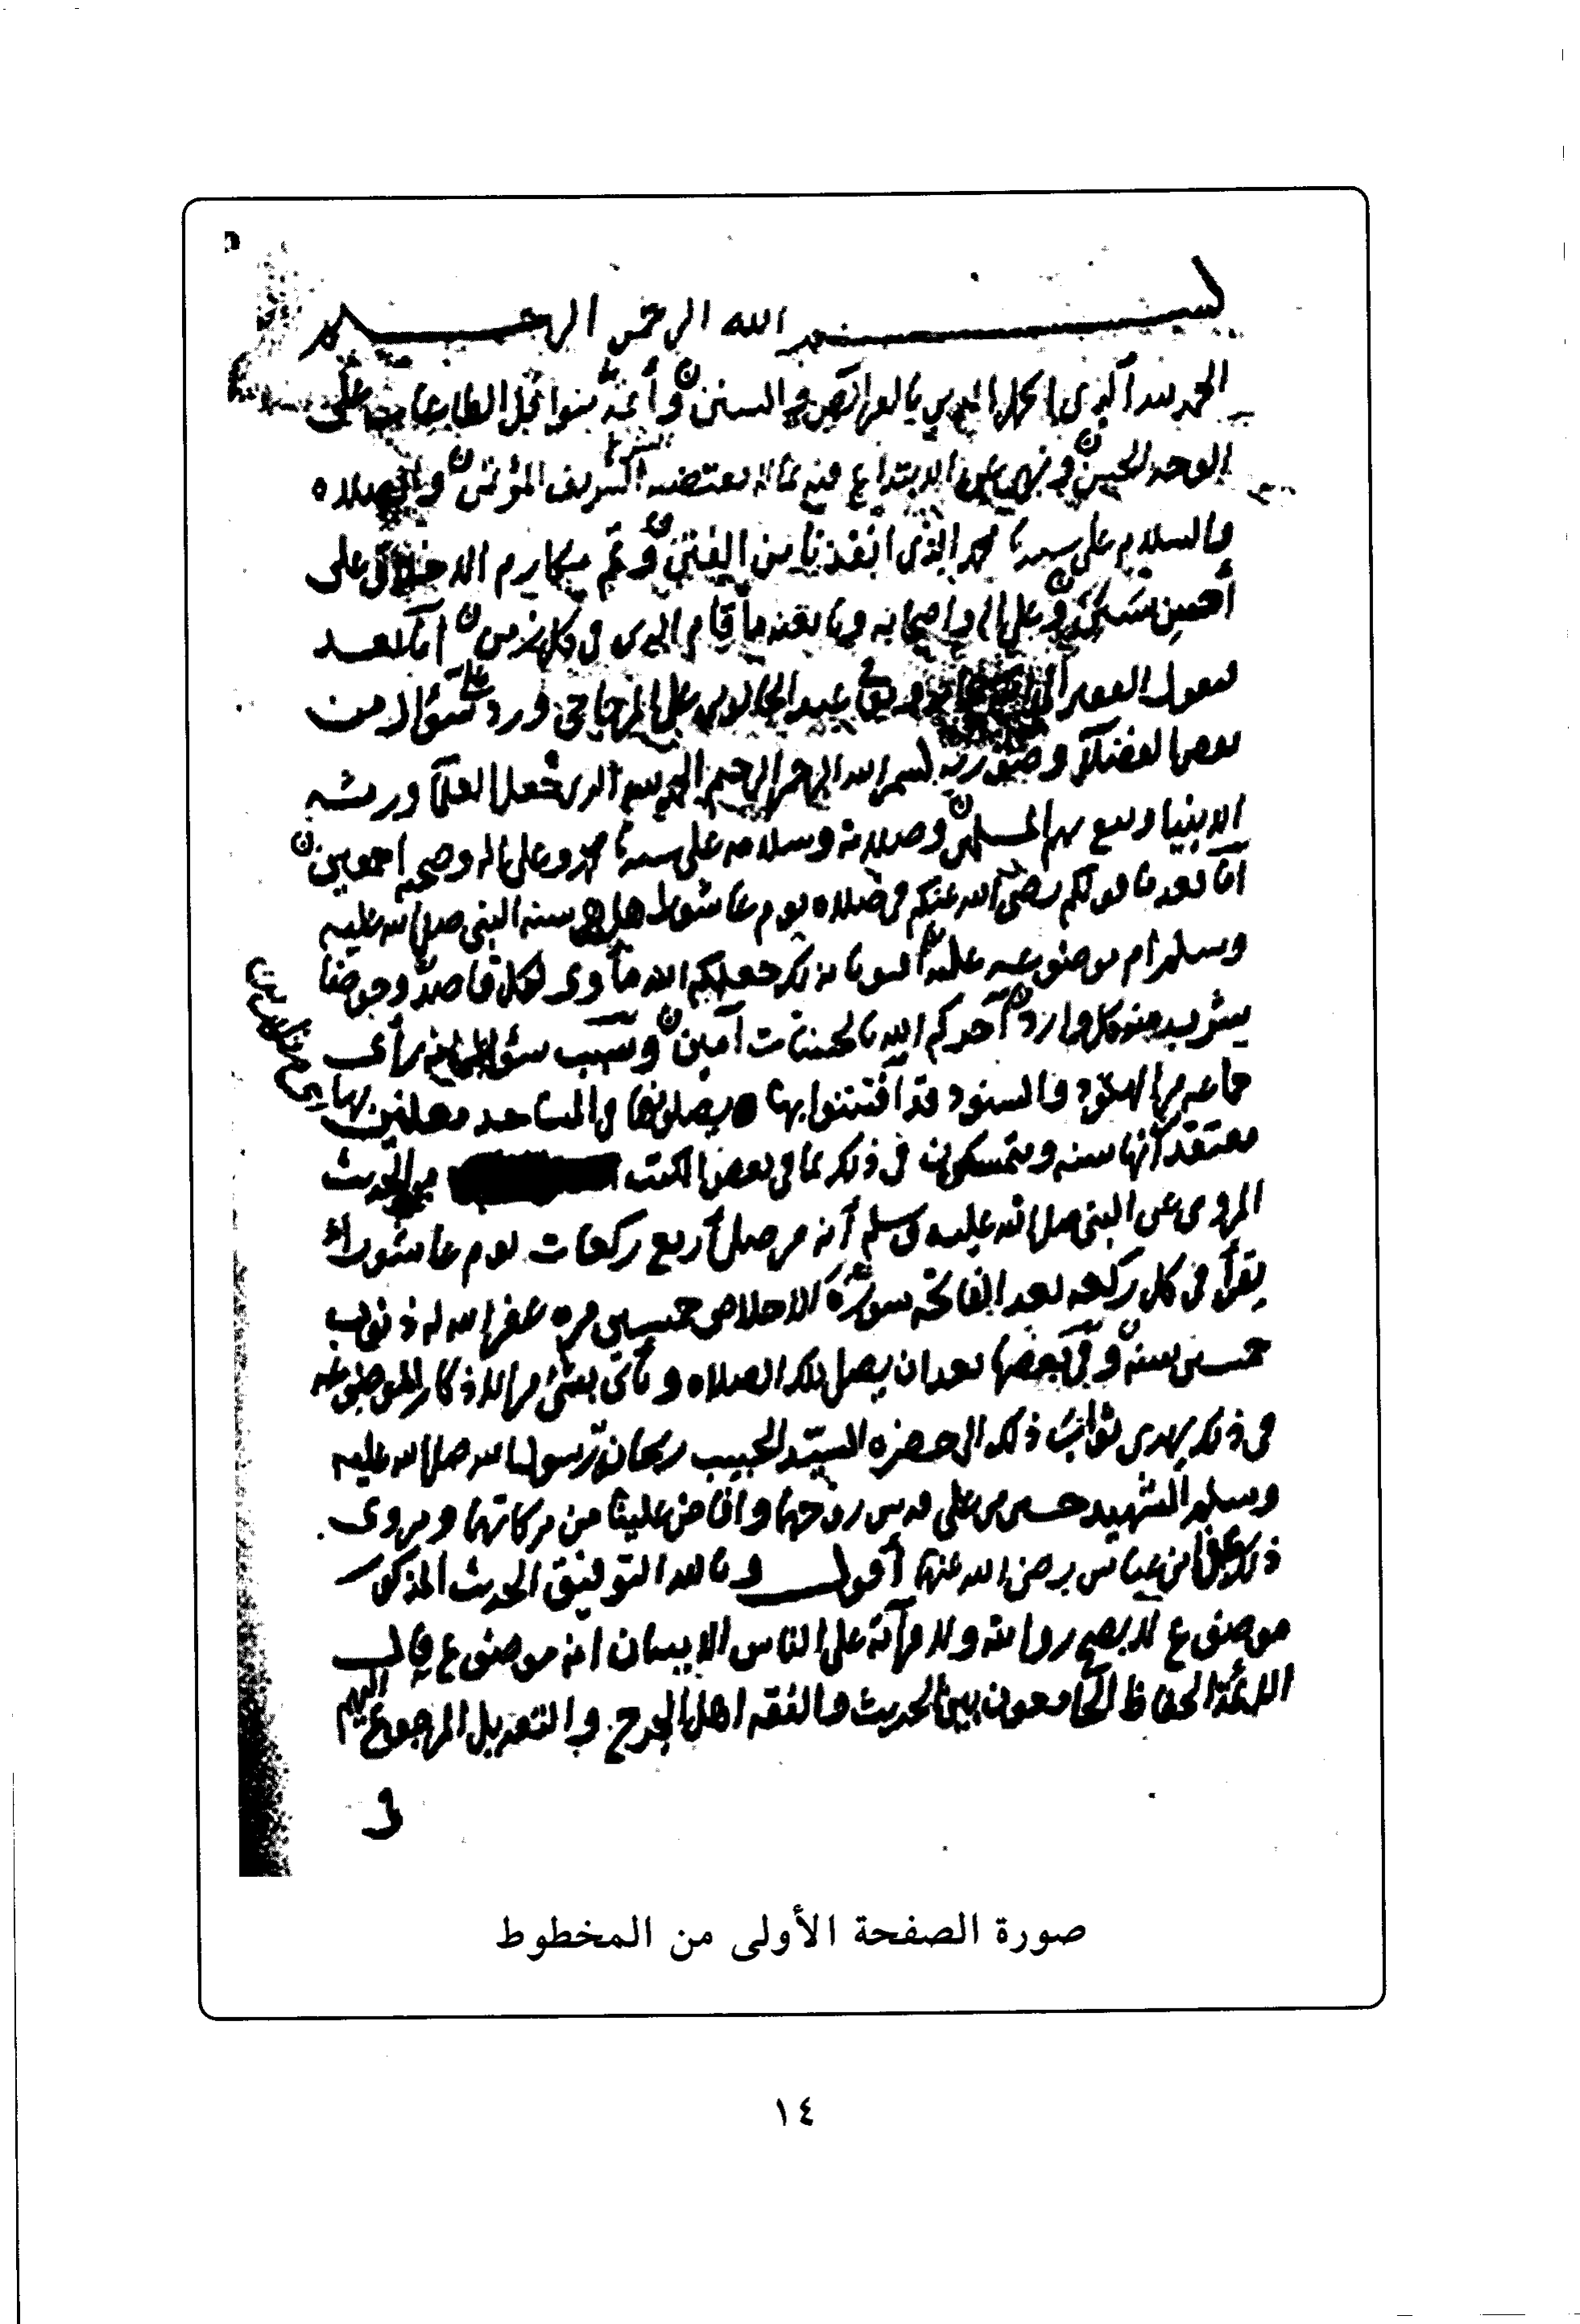 بسم الله الرحمن الرحيم
الحمد لله الذي اكمل الدين بالفرائض والسنن وأتمه بنوافل الطاعات على
الوجه الحسن ونهى عن الابتداع فيه بما لا يقتضيه الشرع الشريف المؤتمن والصلاه
والسلام على سيدنا محمد الذي انقذنا من الفتن وتمم مكارم الاخلاق على
أحسن سنن وعلى اله واصحابه وتابعيه ما قام الدين في كل زمن أما بعد
فيقول الفقير الى عبد الخالق بن علي المزجاجي ورد علي سؤال من
بعض الفضلاء وصورته بسم الله الرحمن الرحيم الحمد لله الذي جعل العلما ورثة
الانبيا ونفع بهم المسلمين وصلاته وسلامه على سيدنا محمد وعلى اله وصحبه اجمعين
أما بعد فما قولكم رضي الله عنكم في صلاه يوم عاشورا هل هي سنه النبي صلى الله عليه
وسلم ام موضوعه عليه أفتونا بذلك جعلكم الله مأوى لكل قاصد وحوضا
يشرب منه كل وارد أمدكم الله بالحسنات آمين وسبب سؤال أنه رأى
جماعه من الهنود والسنود قد افتتنوا بها ويصلونها في المساجد معلنين بها
معتقد أنها سنه ويتمسكون في ذلك بما في بعض الكتب من الحديث
المروي عن النبي صلى الله عليه وسلم أنه من صلى أربع ركعات يوم عاشوراء
يقرأ في كل ركعه بعد الفاتحه سورة الاخلاص خمسين مره غفر الله له ذنوب
خمسين سنه وفي بعضها بعد ان يصلي تلك الصلاه ويأتي بشئ من الاذكار الموضوعه
في ذلك يهدي ثواب ذلك الى حضره السيد الحبيب ريحانة رسول الله صلى الله عليه
وسلم الشهيد حسين بن علي قدس روحهما وافاض علينا من بركاتهما ويروى
ذلك عن ابن عباس رضي الله عنهما أقول وبالله التوفيق الحديث المذكور
موضوع لا يصح روايته ولا قرآته على الناس الا ببيان انه موضوع قال
الائمة الحفاظ الجامعون بين الحديث والفقه اهل الجرح والتعديل المرجوع اليهم
في
صورة الصفحة الأولى من المخطوط
١٤